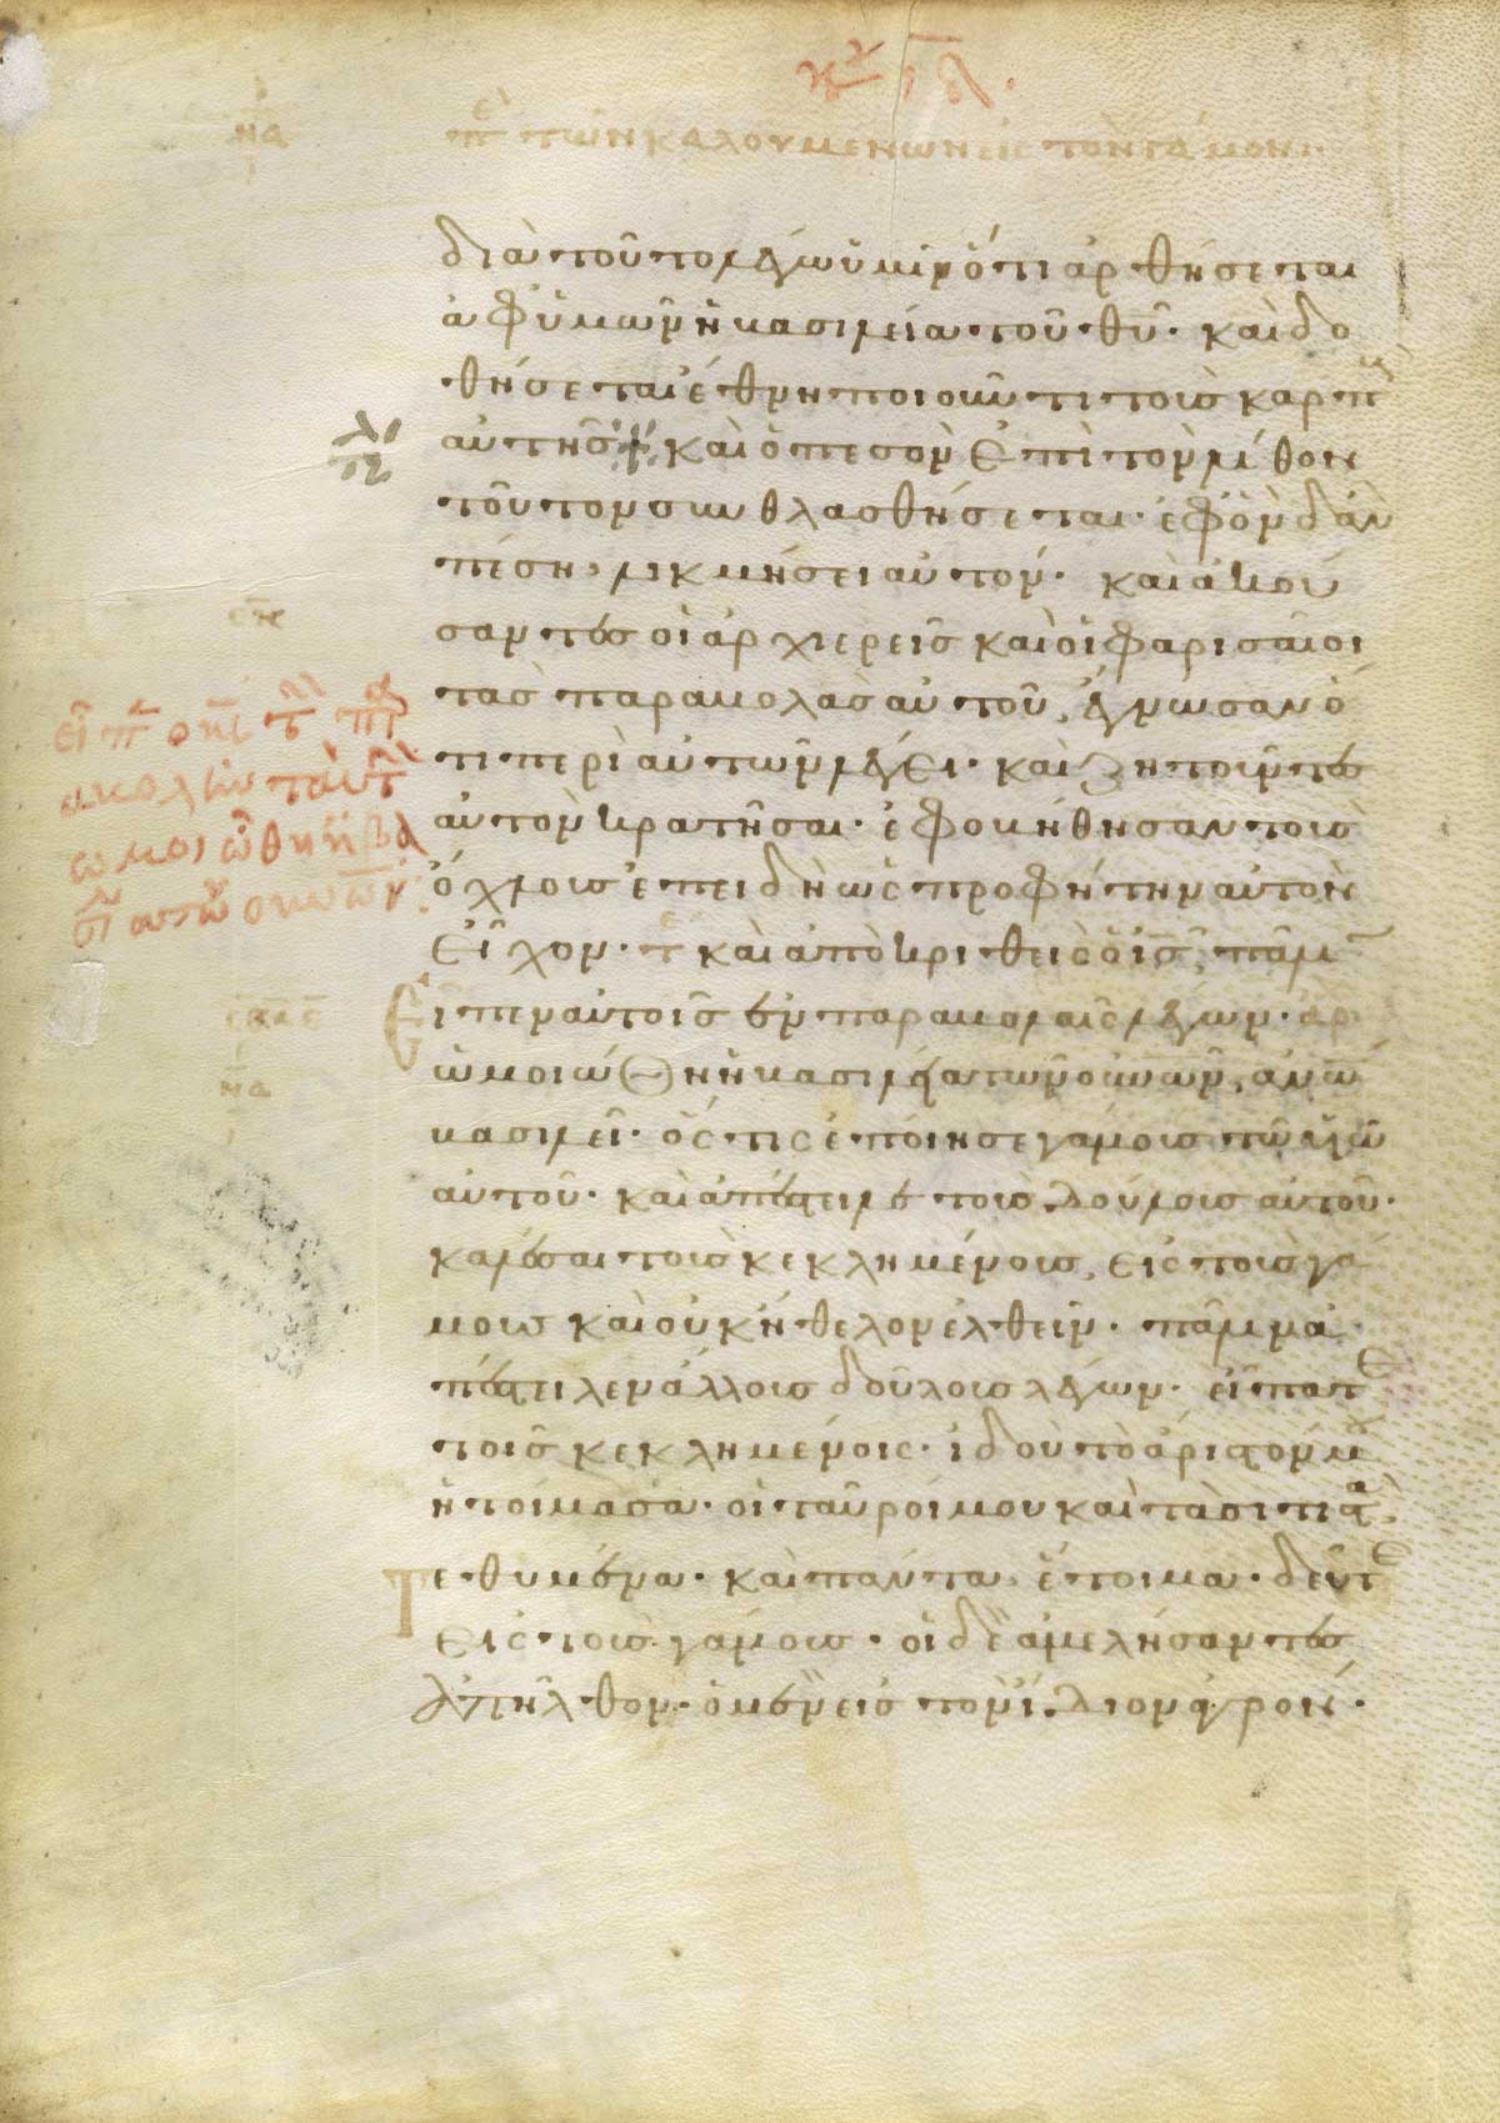 τῶν καλουμένων εἰς τὸν γάμον
διὰ τοῦτο λέγω ὑμῖν ὅτι ἀρθήσεται
ἀφ ὑμῶν ἡ βασιλεία τοῦ θυ· καὶ δο
θήσεται ἔθνη ποιοῦντι τοὺς καρπ
αὐτῆς· καὶ ὁ πεσὼν ἐπὶ τὸν λίθον
τοῦτον συνθλασθήσεται· ἐφ ὃν δ ἂν
πέση, λικμήσει αὐτόν· καὶ ἀκού
σαντες οἱ ἀρχιερεῖς καὶ οἱ φαρισαῖοι
τὰς παραβολὰς αὐτοῦ, ἔγνωσαν ὅ
τι περὶ αὐτῶν λέγει· καὶ ζητοῦντες
αὐτὸν κρατῆσαι· ἐφοβήθησαν τοὺς
ὄχλους ἐπειδὴ ὡς προφήτην αὐτὸν
εἶχον· καὶ ἀποκριθεὶς ὁ ις, πάλιν
εἶπεν αὐτοῖς ἐν παραβολαῖς λέγων·
ὡμοιώθη ἡ βασιλεία τῶν οὐνῶν, ἀνω
βασιλεῖ· ὅς τις ἐποίησε γάμους τῶ υἱῶ
αὐτοῦ· καὶ ἀπέστειλε τοὺς δούλους αὐτοῦ·
καλέσαι τοὺς κεκλημένους, εἰς τοὺς γά
μους καὶ οὐκ ἤθελον ἐλθεῖν· πάλιν ἀ
πέστειλεν ἄλλους δούλους λέγων· εἴπατε
τοῖς κεκλημένοις· ἰδοὺ τὸ ἄριστόν μου
ἡτοίμασα· οἱ ταῦροί μου καὶ τὰ σιτιστὰ
τεθυμένα· καὶ πάντα ἕτοιμα· δεῦτε
εἰς τοὺς γάμους· οἱ δὲ ἀμελήσαντες
ἀπῆλθον· ὁ μὲν εἰς τὸν ἴδιον ἀγρόν·